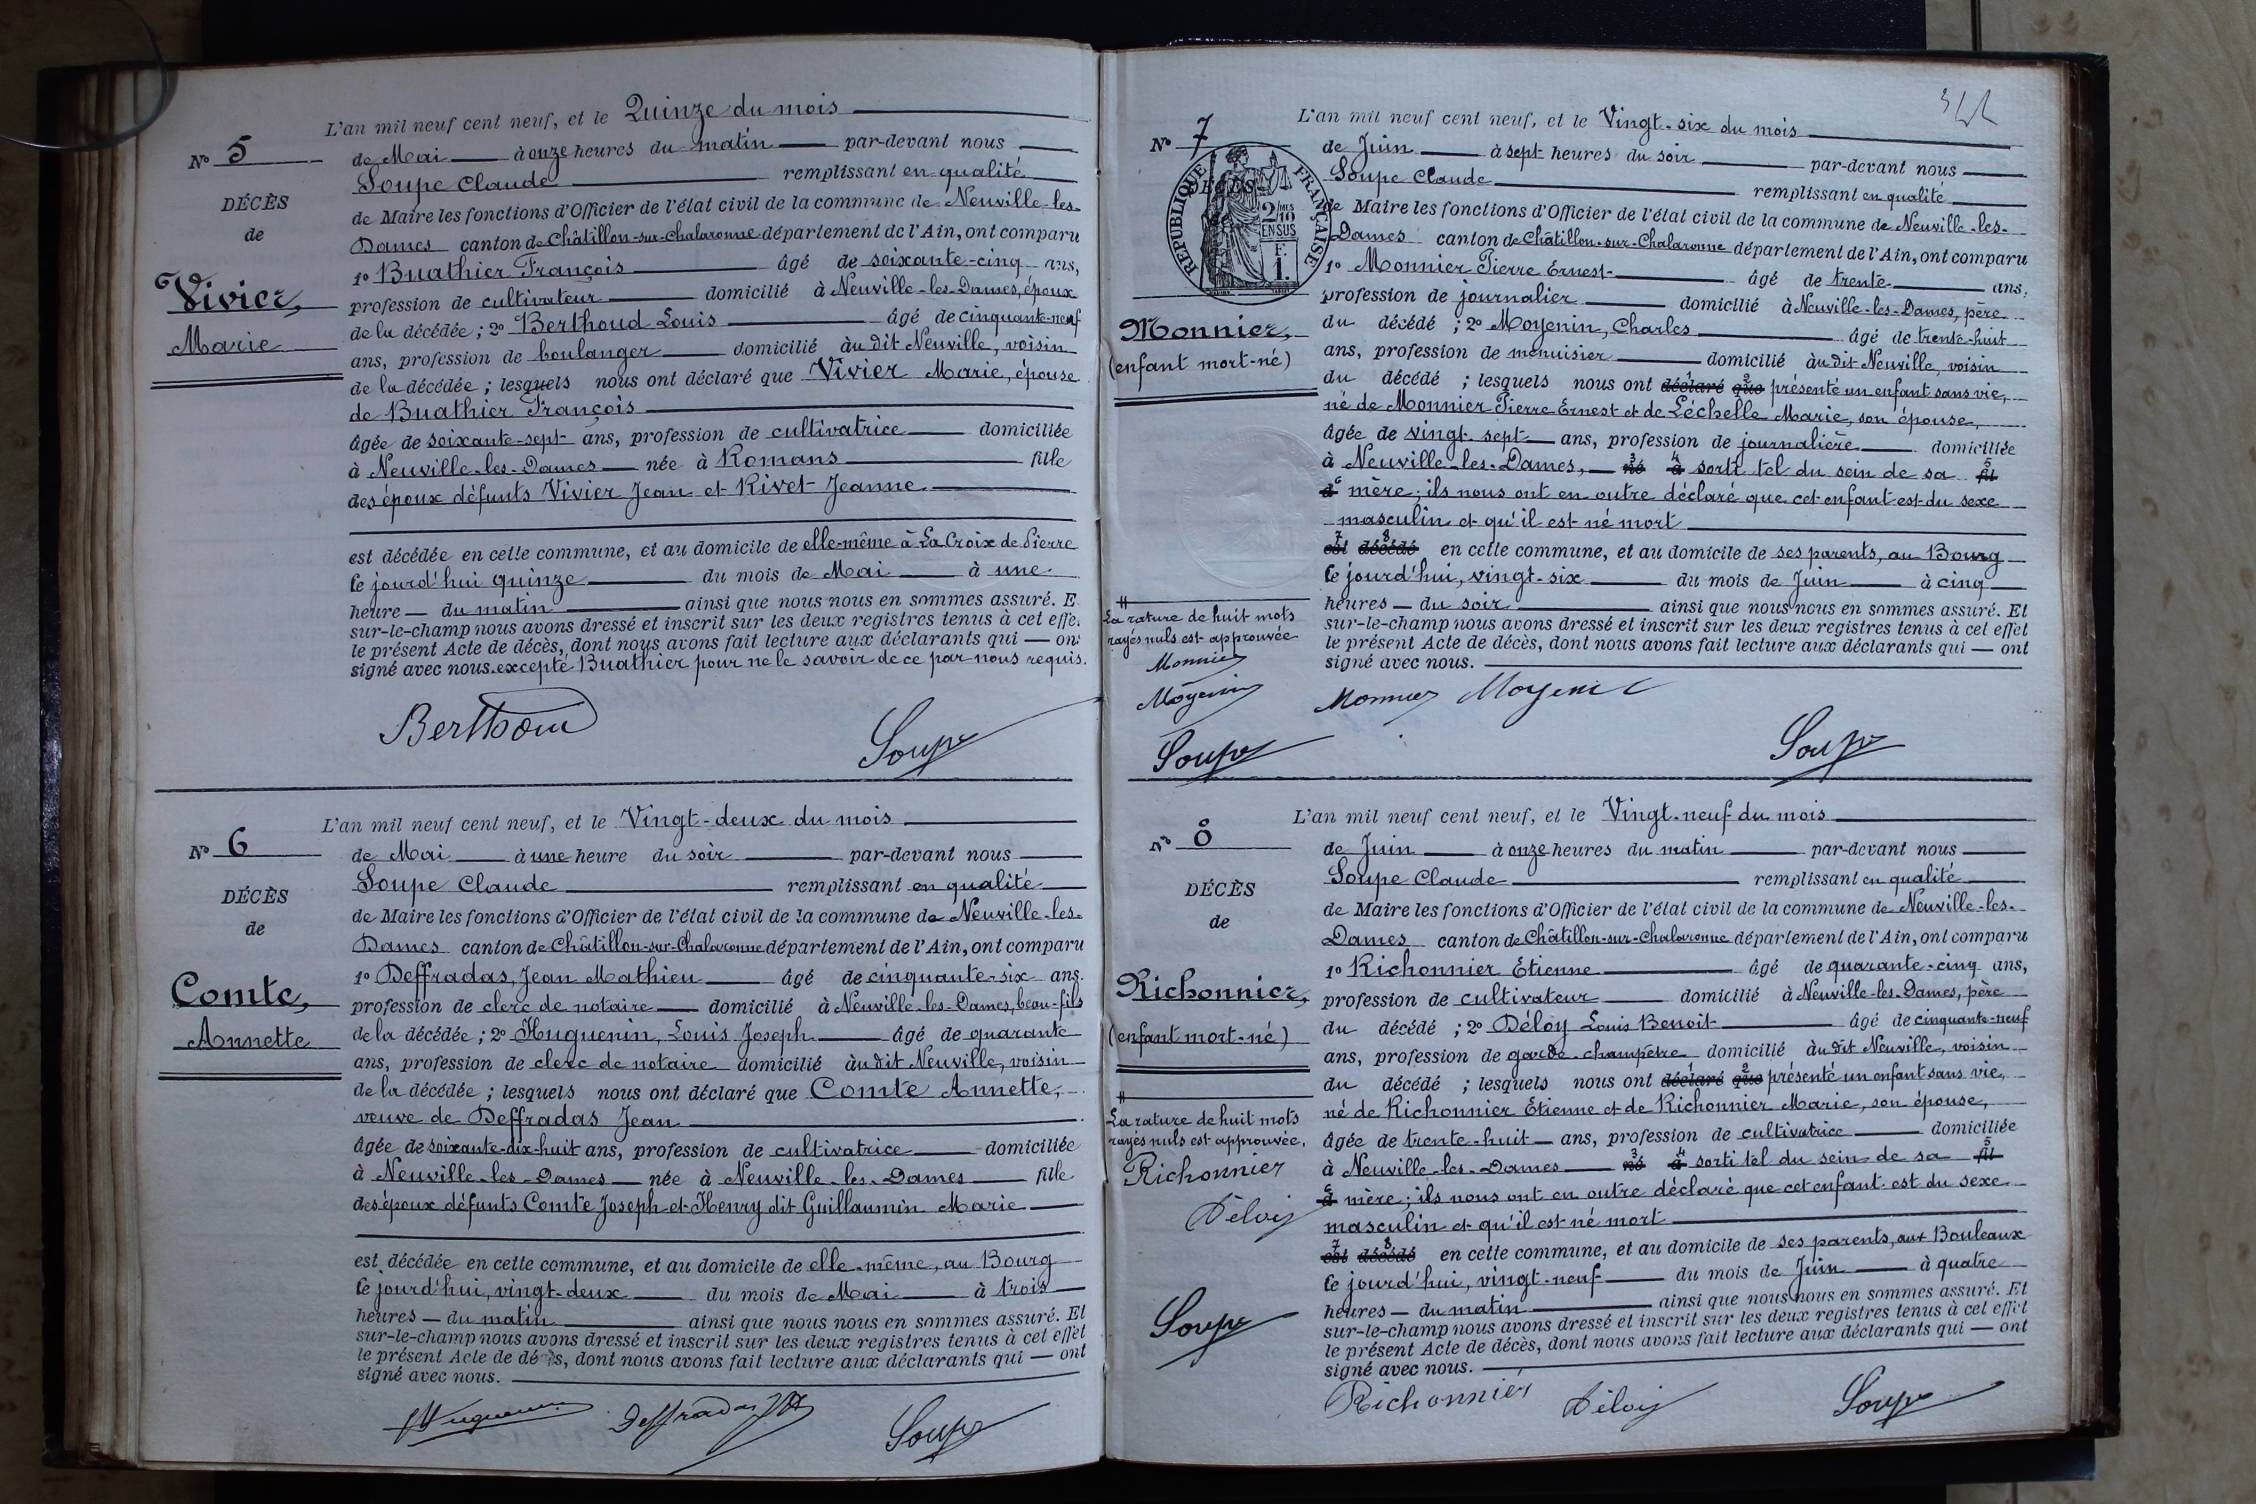 L'an mil neuf cent neuf, et le Quinze du mois
N° 5
de Mai à onze heures du matin par-devant nous
Soupe Claude remplissant en qualité
DÉCÈS
de Maire les fonctions d'Officier de l'état civil de la commune de Neuville-les-
de
Dames canton de Châtillon-sur-Chalaronne département de l'Ain, ont comparu
1° Buathier François âgé de soixante-cinq ans,
Vivier,
profession de cultivateur domicilié à Neuville-les-Dames, époux
de la décédée ; 2° Berthoud Louis âgé de cinquante-neuf
Marie
ans, profession de boulanger domicilié au dit Neuville, voisin
de la décédée ; lesquels nous ont déclaré que Vivier Marie, épouse
de Buathier François
âgée de soixante-sept ans, profession de cultivatrice domiciliée
à Neuville-les-Dames née à Romans fille
des époux défunts Vivier Jean et Rivet Jeanne
est décédée en cette commune, et au domicile de elle-même à La Croix de Pierre
ce jourd'hui quinze du mois de Mai à une
heure du matin ainsi que nous nous en sommes assuré. E
sur-le-champ nous avons dressé et inscrit sur les deux registres tenus à cet effe
le présent Acte de décès, dont nous avons fait lecture aux déclarants qui — on
signé avec nous excepté Buathier pour ne le savoir de ce par nous requis.
Berthoud
Soupe
L'an mil neuf cent neuf, et le Vingt-deux du mois
N° 6
de Mai à une heure du soir par-devant nous
Soupe Claude remplissant en qualité
DÉCÈS
de Maire les fonctions d'Officier de l'état civil de la commune de Neuville-les-
de
Dames canton de Châtillon-sur-Chalaronne département de l'Ain, ont comparu
1° Deffradas, Jean Mathieu âgé de cinquante-six ans.
Comte,
profession de clerc de notaire domicilié à Neuville-les-Dames, beau-fils
de la décédée ; 2° Huguenin, Louis Joseph âgé de quarante
Annette
ans, profession de clerc de notaire domicilié au dit Neuville, voisin
de la décédée ; lesquels nous ont déclaré que Comte Annette,
veuve de Deffradas Jean
âgée de soixante-dix-huit ans, profession de cultivatrice domiciliée
à Neuville-les-Dames née à Neuville-les-Dames fille
des époux défunts Comte Joseph et Henry dit Guillaumin Marie
est décédée en cette commune, et au domicile de elle-même, au Bourg
ce jourd'hui, vingt-deux du mois de Mai à trois
heures — du matin ainsi que nous nous en sommes assuré. Et
sur-le-champ nous avons dressé et inscrit sur les deux registres tenus à cet effet
le présent Acte de décès, dont nous avons fait lecture aux déclarants qui — ont
signé avec nous.
Huguenin Deffradas JM
Soupe
L'an mil neuf cent neuf, et le Vingt-six du mois
N° 7
de Juin à sept heures du soir par-devant nous
Soupe Claude remplissant en qualité
DÉCÈS
RÉPUBLIQUE FRANÇAISE
2/MES 10 EN SUS
F. 1.
de Maire les fonctions d'Officier de l'état civil de la commune de Neuville-les-
Dames canton de Châtillon-sur-Chalaronne département de l'Ain, ont comparu
1° Monnier Pierre Ernest âgé de trente ans,
profession de journalier domicilié à Neuville-les-Dames, père
Monnier,
du décédé ; 2° Moyenin, Charles âgé de trente-huit
(enfant mort-né)
ans, profession de menuisier domicilié au dit Neuville, voisin
du décédé ; lesquels nous ont déclaré 1 que 2 présenté un enfant sans vie,
né de Monnier Pierre Ernest et de Léchelle Marie, son épouse,
âgée de vingt-sept ans, profession de journalière domiciliée
à Neuville-les-Dames, né 3 à 4 sorti tel du sein de sa fil 5
d 6 mère ; ils nous ont en outre déclaré que cet enfant est du sexe
masculin et qu'il est né mort
est 7 décédé 8 en cette commune, et au domicile de ses parents, au Bourg
ce jourd'hui, vingt-six du mois de Juin à cinq
heures — du soir ainsi que nous nous en sommes assuré. Et
sur-le-champ nous avons dressé et inscrit sur les deux registres tenus à cet effet
le présent Acte de décès, dont nous avons fait lecture aux déclarants qui — ont
signé avec nous.
La rature de huit mots
rayés nuls est approuvée
Monnier
Moyenin
Soupe
Monnier Moyenin
Soupe
L'an mil neuf cent neuf, et le Vingt-neuf du mois
N° 8
de Juin à onze heures du matin par-devant nous
Soupe Claude remplissant en qualité
DÉCÈS
de Maire les fonctions d'Officier de l'état civil de la commune de Neuville-les-
de
Dames canton de Châtillon-sur-Chalaronne département de l'Ain, ont comparu
1° Richonnier Étienne âgé de quarante-cinq ans,
Richonnier,
profession de cultivateur domicilié à Neuville-les-Dames, père
du décédé ; 2° Déloy Louis Benoit âgé de cinquante-neuf
(enfant mort-né)
ans, profession de garde-champêtre domicilié au dit Neuville, voisin
du décédé ; lesquels nous ont déclaré 1 que 2 présenté un enfant sans vie,
né de Richonnier Étienne et de Richonnier Marie, son épouse,
âgée de trente-huit ans, profession de cultivatrice domiciliée
à Neuville-les-Dames né 3 à 4 sorti tel du sein de sa fil 5
d 6 mère ; ils nous ont en outre déclaré que cet enfant est du sexe
masculin et qu'il est né mort
est 7 décédé 8 en cette commune, et au domicile de ses parents, aux Bouleaux
ce jourd'hui, vingt-neuf du mois de Juin à quatre
heures — du matin ainsi que nous nous en sommes assuré. Et
sur-le-champ nous avons dressé et inscrit sur les deux registres tenus à cet effet
le présent Acte de décès, dont nous avons fait lecture aux déclarants qui — ont
signé avec nous.
La rature de huit mots
rayés nuls est approuvée,
Richonnier
Déloy
Soupe
Richonnier Déloy
Soupe